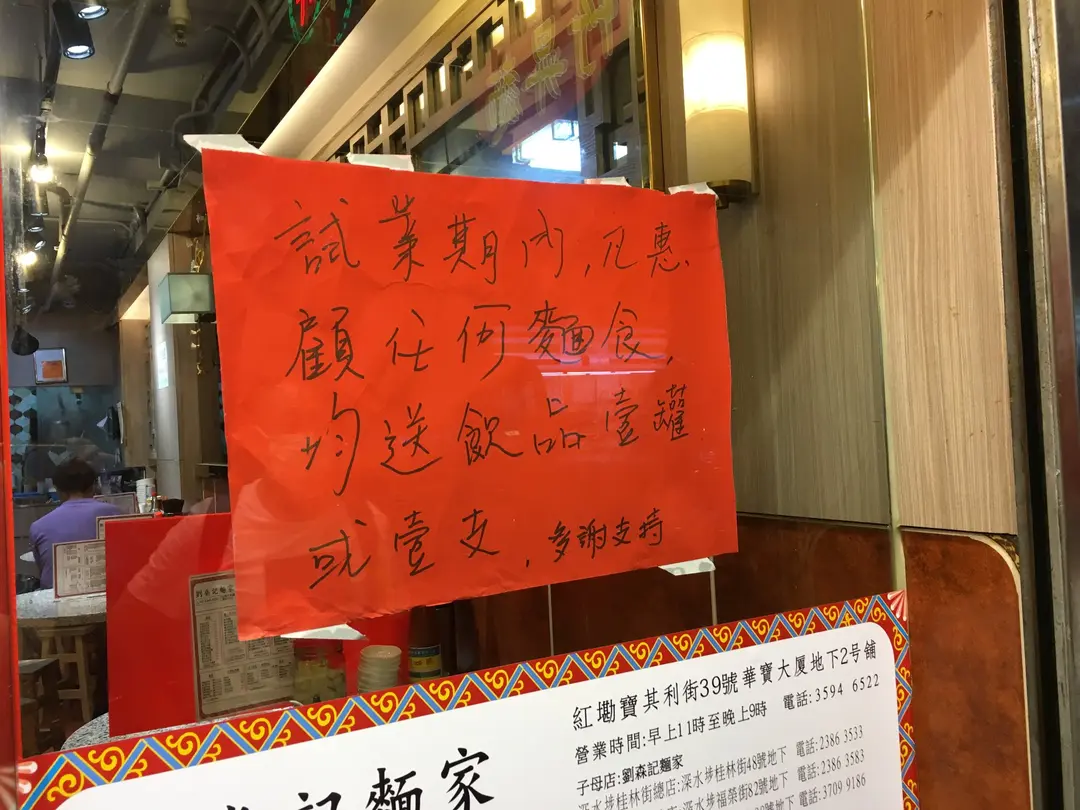 試業期內,凡惠
顧任何麵食,
均送飲品壹罐
或壹支,多謝支持
紅磡寶其利街39號華寶大厦地下2号舖
營業時間:早上11時至晚上9時 電話:3594 6522
子母店:劉森記麵家
深水埗桂林街總店:深水埗桂林街48號地下 電話:2386 3533
深水埗福榮街82號地下 電話:2386 3583
號地下 電話:3709 9186
記麵家